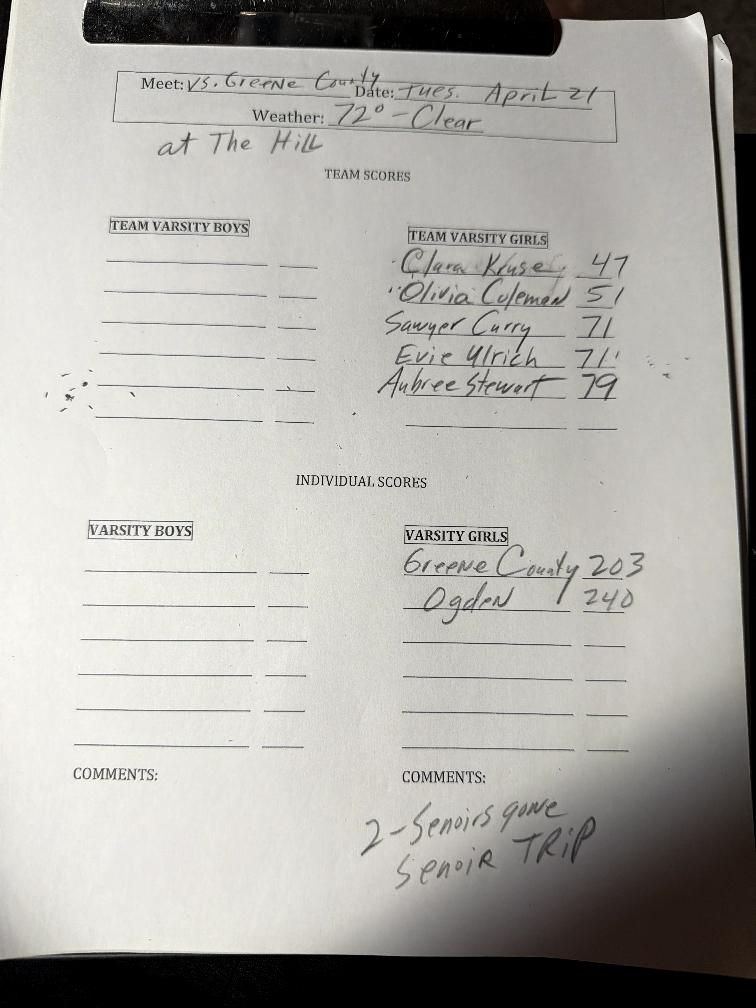 Meet: VS. Greene County Date: Tues. April 21
Weather: 72° - Clear
at The Hill
TEAM SCORES
TEAM VARSITY BOYS
TEAM VARSITY GIRLS
Clara Kruse 47
Olivia Coleman 51
Sawyer Curry 71
Evie Ulrich 71
Aubree Stewart 79
INDIVIDUAL SCORES
VARSITY BOYS
VARSITY GIRLS
Greene County 203
Ogden 240
COMMENTS:
COMMENTS:
2-Senoirs gone
Senoir TRiP